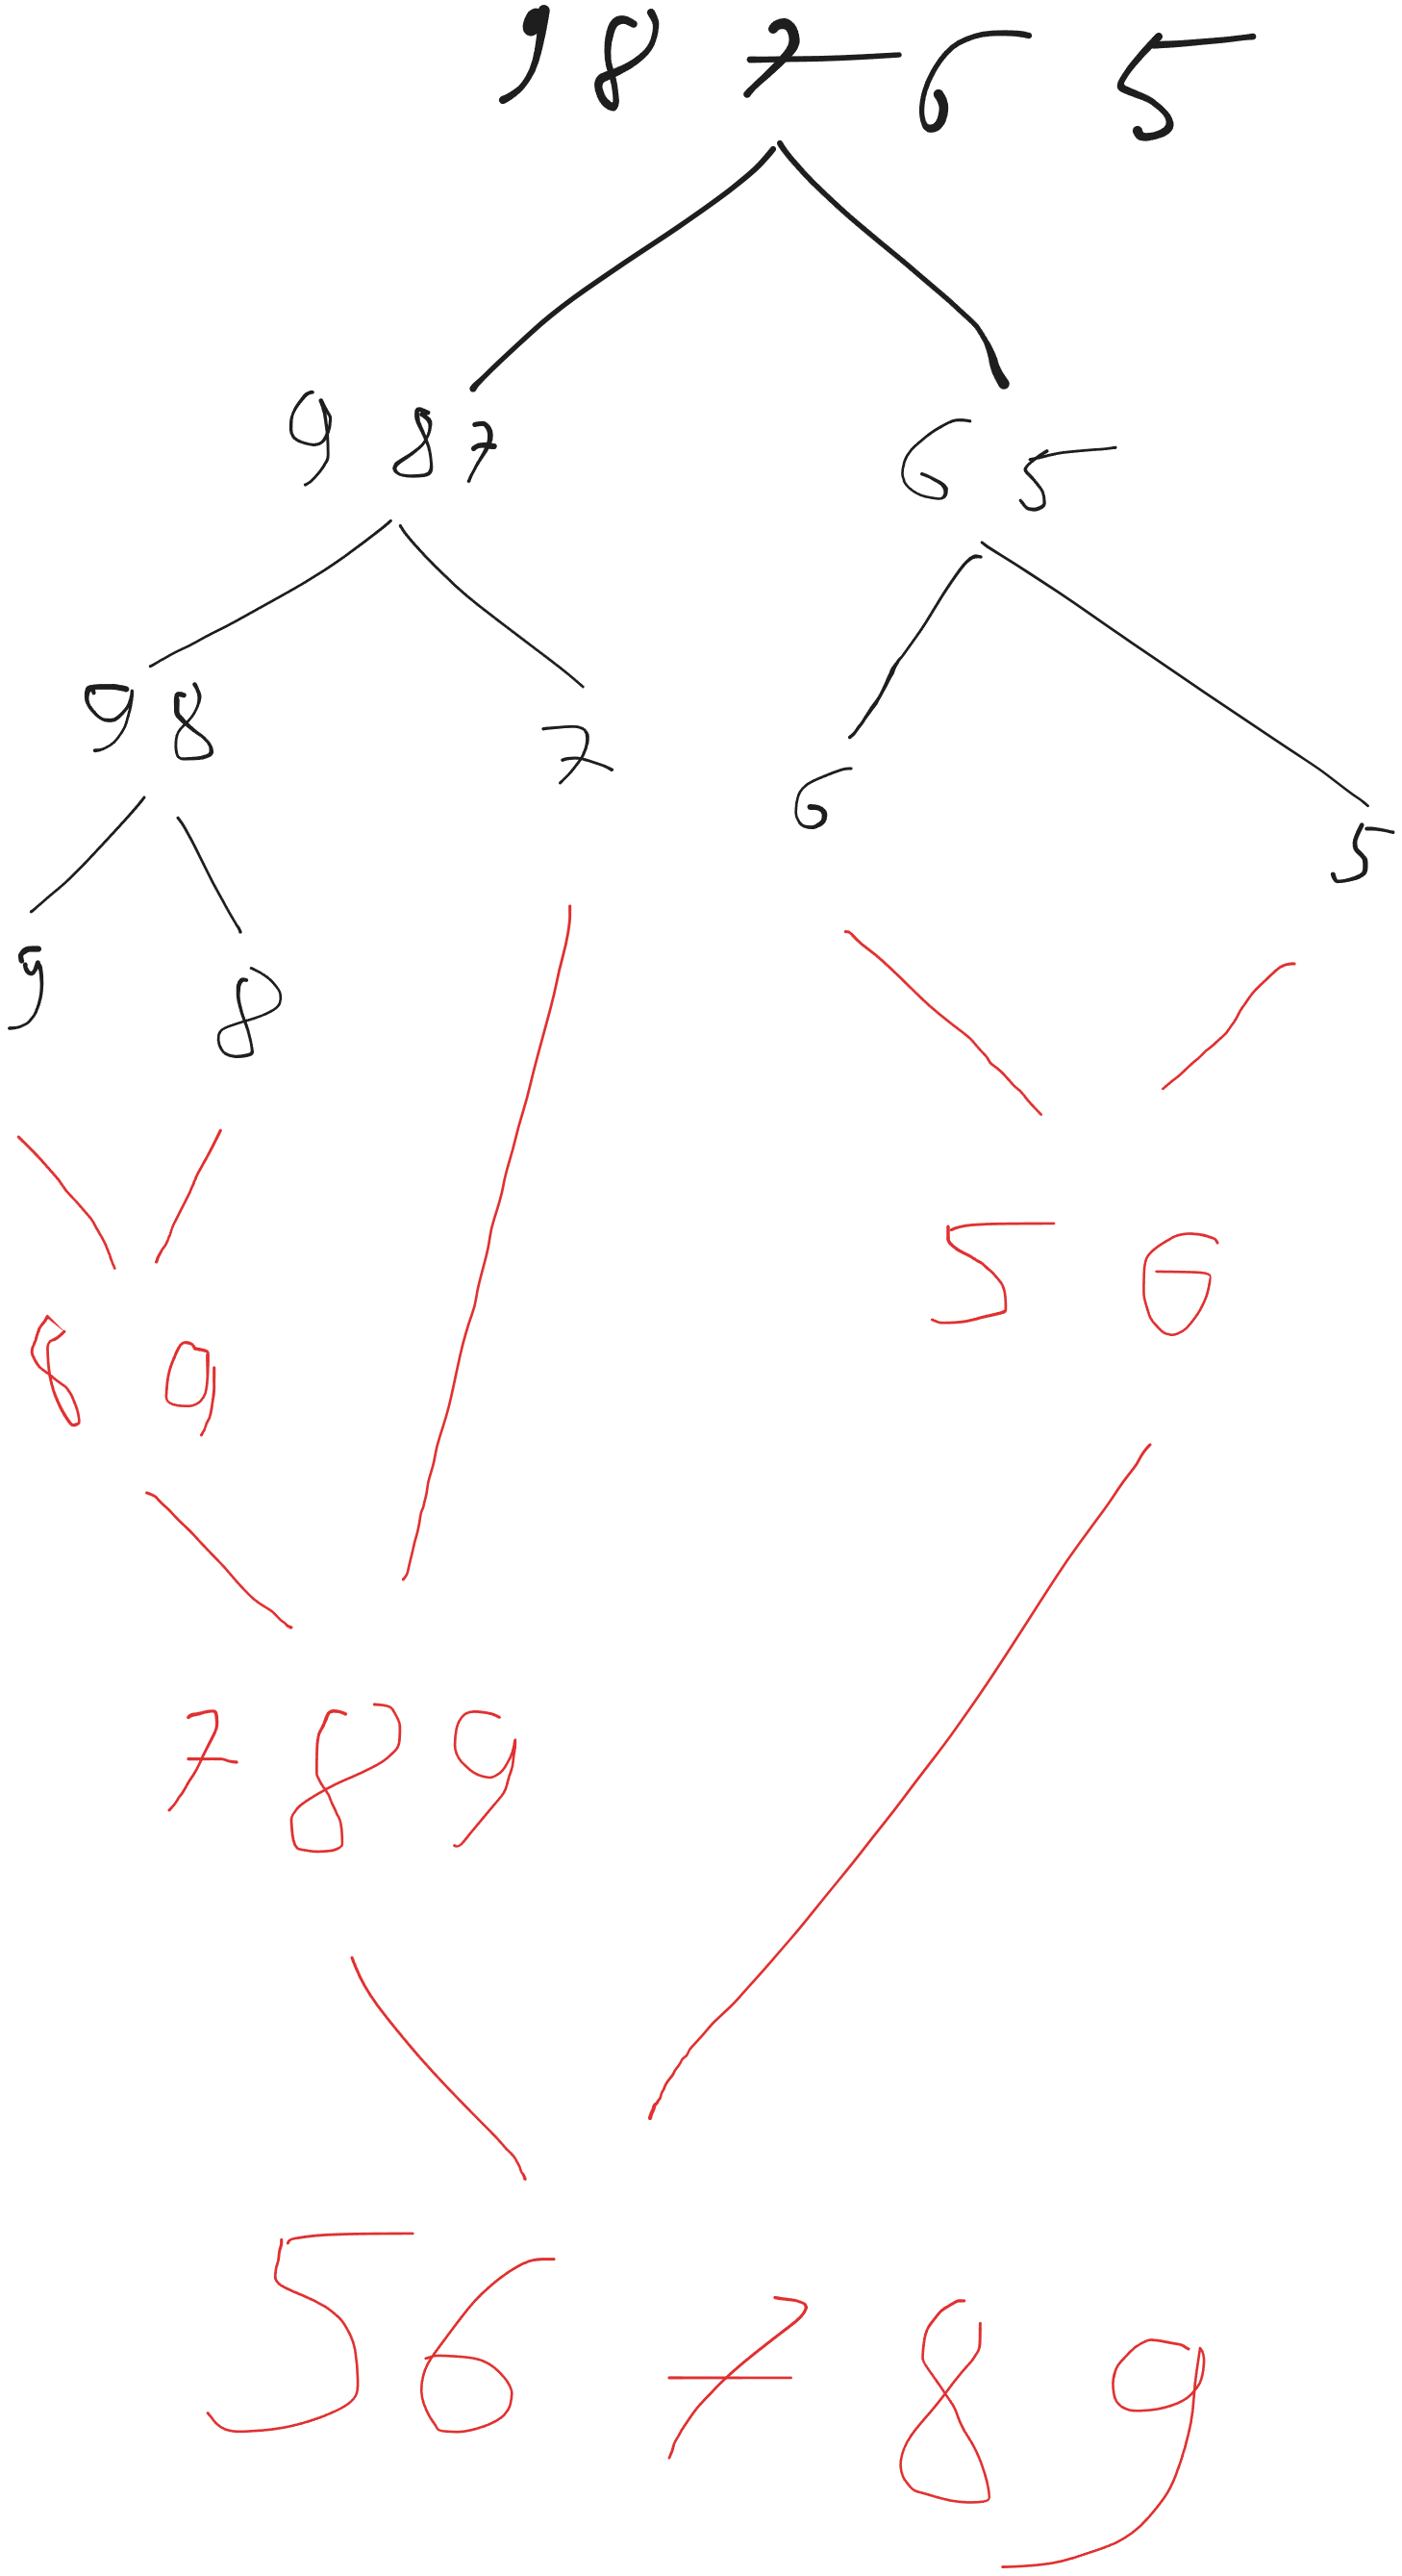 9 8 7 6 5
9 8 7 6 5
9 8 7 6 5
9 8
5 6
8 9
7 8 9
5 6 7 8 9